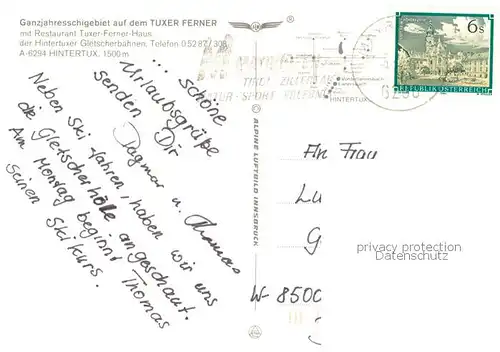 Ganzjahresschigebiet auf dem TUXER FERNER
mit Restaurant Tuxer-Ferner-Haus
der Hintertuxer Gletscherbahnen, Telefon 0 52 87 / 308
A-6294 HINTERTUX, 1500 m
... schöne
Urlaubsgrüße
senden Dir
Dagmar u. Thomas
Neben Ski fahren, haben wir uns
die Gletscherhölle angeschaut.
Am Montag beginnt Thomas
seinen Skikurs.
© ALPINE LUFTBILD INNSBRUCK
TIROL ZILLERTAL
HINTERTUX
6 S
REPUBLIK ÖSTERREICH
An Frau
Lu
G
W-8500
privacy protection
Datenschutz